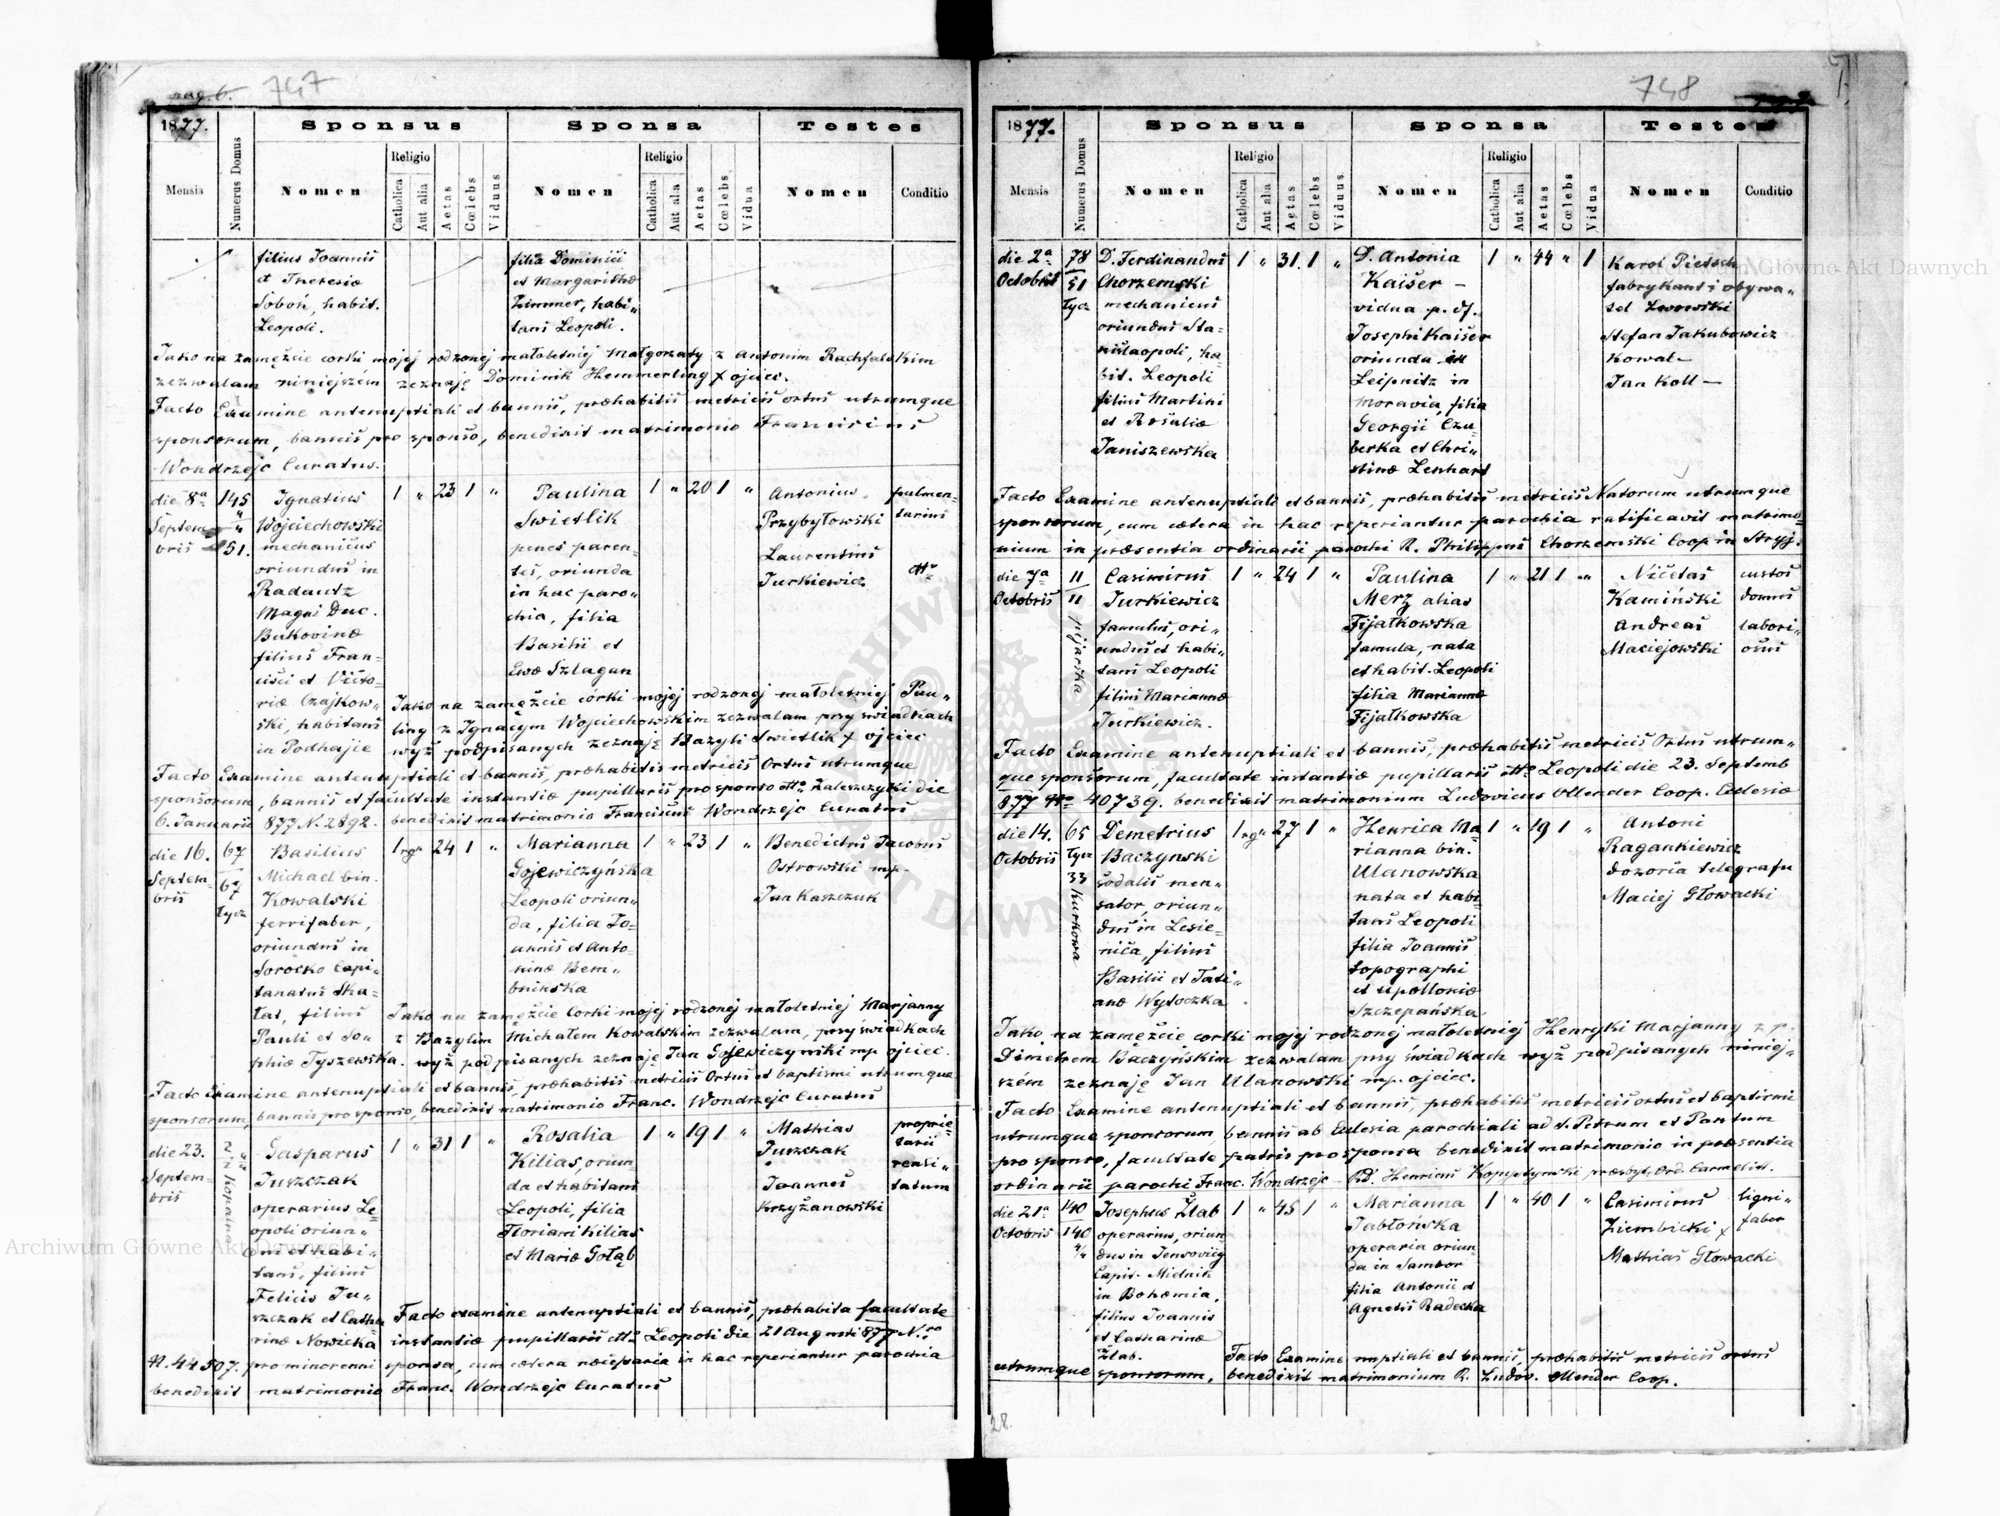 pag. 6. 747
1877.
Sponsus Sponsa Testes
Mensis Numerus Domus Nomen Religio Catholica Aut alia Aetas Cœlebs Vidus Nomen Religio Catholica Aut alia Aetas Cœlebs Vidua Nomen Conditio
filius Joannis
et Theresiæ
Soboń, habit.
Leopoli.
filia Dominici
et Margarithæ
Zimmer, habi„
tans Leopoli.
Jako na zamężcie corki mojej rodzonej małoletniej Małgorzaty z Antonim Rachfalskim
zezwalam niniejszém zeznaję Dominik Hemmerling x ojciec.
Facto Examine antenuptiali et bannis, præhabitis metricis ortus utrumque
sponsorum, bannis pro sponso, benedixit matrimonio Franciscus
Wondrzejc Curatus.
die 8ª
Septem„
bris
145
„
„
51.
Ignatius
Wojciechowski
mechanicus
oriundus in
Radautz
Magni Duc.
Bukovinæ
filius Fran„
cisci et Victo„
riæ Czajkow„
ski, habitans
in Podhajce
1 „ 23 1 „
Paulina
Swietlik
penes paren„
tes, oriunda
in hac paro„
chia, filia
Basilii et
Evæ Szlagun
1 „ 20 1 „
Antonius
Przybyłowski
Laurentius
Jurkiewicz
pulmen„
tarius
Jako na zamężcie córki mojej rodzonej małoletniej Pau„
liny z Ignacym Wojciechowskim zezwalam przy świadkach
wyż podpisanych zeznaję Bazyli Swietlik x ojciec
Facto Examine antenuptiali et bannis, præhabitis metricis Ortus utrumque
sponsorum, bannis et facultate instantiæ pupillaris pro sponso dtto Zaleszczyki die
6. Januarii 877 N. 2892. benedixit matrimonio Franciscus Wondrzejc Curatus
die 16.
Septem„
bris
67
67
Łycz
Basilius
Michael bin.
Kowalski
ferrifaber,
oriundus in
Sorocko Capi„
tanatus Ska„
łat, filius
Pauli et So„
phiæ Tyszewska.
1 rg. „ 24 1 „
Marianna
Gojewiczyńska
Leopoli oriun„
da, filia Jo„
annis et Anto„
ninæ Bem„
bnińska
1 „ 23 1 „
Benedictus Jacobus
Ostrowski mp.
Jan Kaszczuk
Jako na zamężcie Corki mojej rodzonej małoletniej Marjanny
z Bazylim Michałem Kowalskim zezwalam, przy świadkach
wyż podpisanych zeznaję Jan Gojewiczyński mp ojciec.
Facto Examine antenuptiali et bannis, præhabitis metricis Ortus et baptismi utrumque
sponsorum, bannis pro sponso, benedixit matrimonio Franc. Wondrzejc Curatus
die 23.
Septem„
bris
Kopalna
Gasparus
Juszczak
operarius Le„
opoli oriun„
dus et habi„
tans, filius
Felicis Ju„
szczak et Catha
rinæ Nowicka
1 „ 31 1 „
Rosalia
Kilias, oriun„
da et habitans
Leopoli, filia
Floriani Kilias
et Mariæ Gołąb
1 „ 19 1 „
Mathias
Juszczak
Joannes
Krzyżanowski
proprie„
tarii
reali„
tatum
Facto examine antenuptiali et bannis, præhabita facultate
instantiæ pupillaris dtto Leopoli die 21 Augusti 877 Nro
N. 44507. pro minorenni sponsa, cum cætera necessaria in hac reperiantur parochia
benedixit matrimonio Franc. Wondrzejc Curatus
748
1877.
Sponsus Sponsa Testes
Mensis Numerus Domus Nomen Religio Catholica Aut alia Aetas Cœlebs Vidus Nomen Religio Catholica Aut alia Aetas Cœlebs Vidua Nomen Conditio
die 2ª
Octobris
78
51
Łycz
D. Ferdinandus
Chorzemski
mechanicus
oriundus Sta„
nislaopoli, ha„
bit. Leopoli
filius Martini
et Rosaliæ
Janiszewska
1 „ 31. 1 „
D. Antonia
Kaiser –
vidua p. d.
Josephi Kaiser
oriunda in
Leipnitz in
Moravia, filia
Georgii Czu„
berka et Chri„
stinæ Lenhart
1 „ 44 „ 1
Karol Pietsch
fabrykant i obywa„
tel Lwowski
Stefan Jakubowicz
Kowal –
Jan Koll –
Facto Examine antenuptiali et bannis, præhabitis metricis Natorum utrumque
sponsorum, cum cætera in hac reperiantur parochia ratificavit matrimo„
nium in præsentia ordinarii parochi R. Philippus Chorzemski Coop in Stryj.
die 7ª
Octobris
11
11
pijarska
Casimirus
Jurkiewicz
famulus, ori„
undus et habi„
tans Leopoli
filius Mariannæ
Jurkiewicz.
1 „ 24 1 „
Paulina
Merz alias
Fijałkowska
famula, nata
et habit. Leopoli
filia Mariannæ
Fijałkowska
1 „ 21 1 „
Nicetas
Kamiński
Andreas
Maciejowski
custos
domus
labori„
osus
Facto Examine antenuptiali et bannis, præhabitis metricis Ortus utrum„
que sponsorum, facultate instantiæ pupillaris dtto Leopoli die 23. Septemb
877 Nro 40739. benedixit matrimonium Ludovicus Ollender Coop. Eclesiæ
die 14.
Octobris
65
Łycz
33
Kurkowa
Demetrius
Baczynski
sodalis men„
sator, oriun„
dus in Lesie„
nica, filius
Basilii et Tati„
anæ Wysoczka
1 rg. „ 27 1 „
Henrica Ma„
rianna bin.
Ulanowska
nata et habi„
tans Leopoli
filia Joannis
topographi
et Apolloniæ
Szczepańska
1 „ 19 1 „
Antoni
Ragankiewicz
dozorca telegrafu
Maciej Głowacki
Jako na zamężcie corki mojej rodzonej małoletniej Henryki Marjanny z p.
Dimetrem Baczyńskim zezwalam przy świadkach wyż podpisanych niniej„
szém zeznaję Jan Ulanowski mp. ojciec.
Facto Examine antenuptiali et bannis, præhabitis metricis ortus et baptismi
utrumque sponsorum, bannis ab Eclesia parochiali ad S. Petrum et Pantum
pro sponso, facultate patris pro sponsa benedixit matrimonio in præsentia
ordinarii parochi Franc. Wondrzejc – RD. Henricus Kopystyński presbyt. Ord. Carmelitt.
die 21ª
Octobris
140
140
4/4
Josephus Žlab
operarius, oriun„
dus in Jensovitz
Capit. Mielnik
in Bohæmia,
filius Joannis
et Catharinæ
Žlab.
1 „ 45 1 „
Marianna
Jabłońska
operaria oriun„
da in Sambor
filia Antonii et
Agnetis Radecka
1 „ 40 1 „
Casimirus
Ziembicki x
Mathias Głowacki
ligni„
faber
Facto Examine nuptiali et bannis, præhabitis metricis ortus
utrumque sponsorum, benedixit matrimonium R. Ludov. Ollender Coop.
28.
Archiwum Główne Akt Dawnych
Archiwum Główne Akt Dawnych